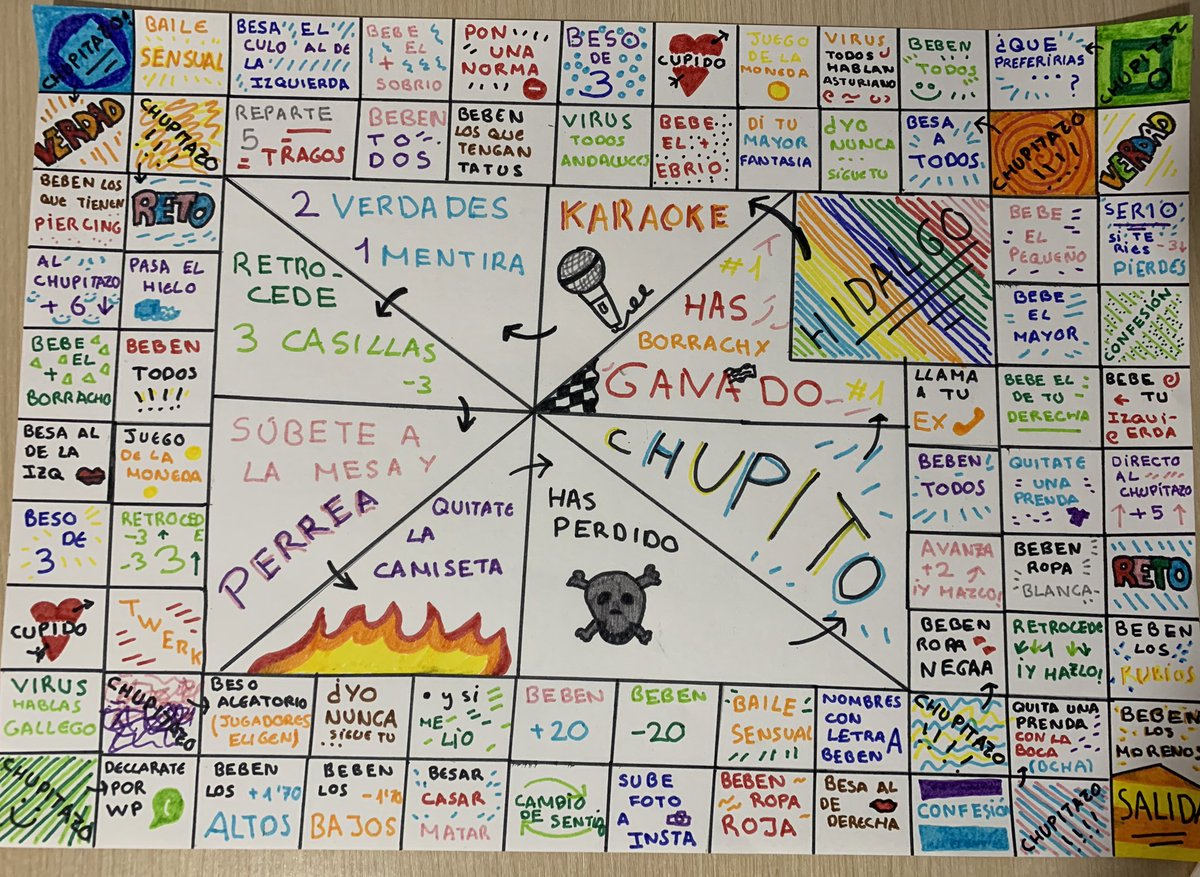 CHUPITAZO!
BAILE
SENSUAL
BESA EL
CULO AL DE
LA
IZQUIERDA
BEBE
EL
+
SOBRIO
PON
UNA
NORMA
BESO
DE
3
CUPIDO
JUEGO
DE LA
MONEDA
VIRUS
TODOS
HABLAN
ASTURIANO
BEBEN
TODOS
¿QUE
PREFERIRIAS
?
CHUPITAZO
VERDAD
CHUPITAZO
!!!!
REPARTE
5
TRAGOS
BEBEN
TO
DOS
BEBEN
LOS QUE
TENGAN
TATUS
VIRUS
TODOS
ANDALUCES
BEBE
EL +
EBRIO
DI TU
MAYOR
FANTASIA
¿YO
NUNCA
...
SIGUE TU
BESA
A
TODOS
CHUPITAZO
!!!!
VERDAD
BEBEN LOS
QUE TIENEN
PIERCING
RETO
AL
CHUPITAZO
+ 6 ↓
PASA EL
HIELO
BEBE
EL
+
BORRACHO
BEBEN
TODOS
!!!!
BESA AL
DE LA
IZQ
JUEGO
DE LA
MONEDA
BESO
DE
3
RETROCEDE
-3 ↑
-3 3 ↑
CUPIDO
TWERK
VIRUS
HABLAS
GALLEGO
CHUPITAZO
2 VERDADES
1 MENTIRA
RETRO-
CEDE
3 CASILLAS
-3
KARAOKE
#1
HAS
BORRACHX
GANADO
#1
HIDALGO!
SÚBETE A
LA MESA Y
PERREA
QUITATE
LA
CAMISETA
HAS
PERDIDO
CHUPITO
BEBE
EL
PEQUEÑO
SERIO
SI TE
RIES -3↓
PIERDES
BEBE
EL
MAYOR
CONFESIÓN
LLAMA
A TU
EX
BEBE EL
DE TU
DERECHA
BEBE
← TU
IZQUI-
ERDA
BEBEN
TODOS
QUITATE
UNA
PRENDA
DIRECTO
AL
CHUPITAZO
↑ +5 ↑
AVANZA
+2
¡Y HAZLO!
BEBEN
ROPA
BLANCA
RETO
BEBEN
ROPA
NEGAA
RETROCEDE
↓↓4 ↓
¡Y HAZLO!
BEBEN
LOS
RUBIOS
BESO
ALEATORIO
(JUGADORES
ELIGEN)
¿YO
NUNCA
... SIGUE TU
• Y SI
ME
LIO
BEBEN
+20
BEBEN
-20
BAILE
SENSUAL
NOMBRES
CON
LETRA A
BEBEN
CHUPITAZO
QUITA UNA
PRENDA
CON LA
BOCA
(DCHA)
BEBEN
LOS
MORENOS
CHUPITAZO
DECLARATE
POR
WP
BEBEN
LOS +1'70
ALTOS
BEBEN
LOS -1'70
BAJOS
BESAR
CASAR
MATAR
CAMBIO
DE SENTIDO
SUBE
FOTO
A
INSTA
BEBEN
ROPA
ROJA
BESA AL
DE
DERECHA
CONFESIÓN
CHUPITAZO
!!!!
SALIDA